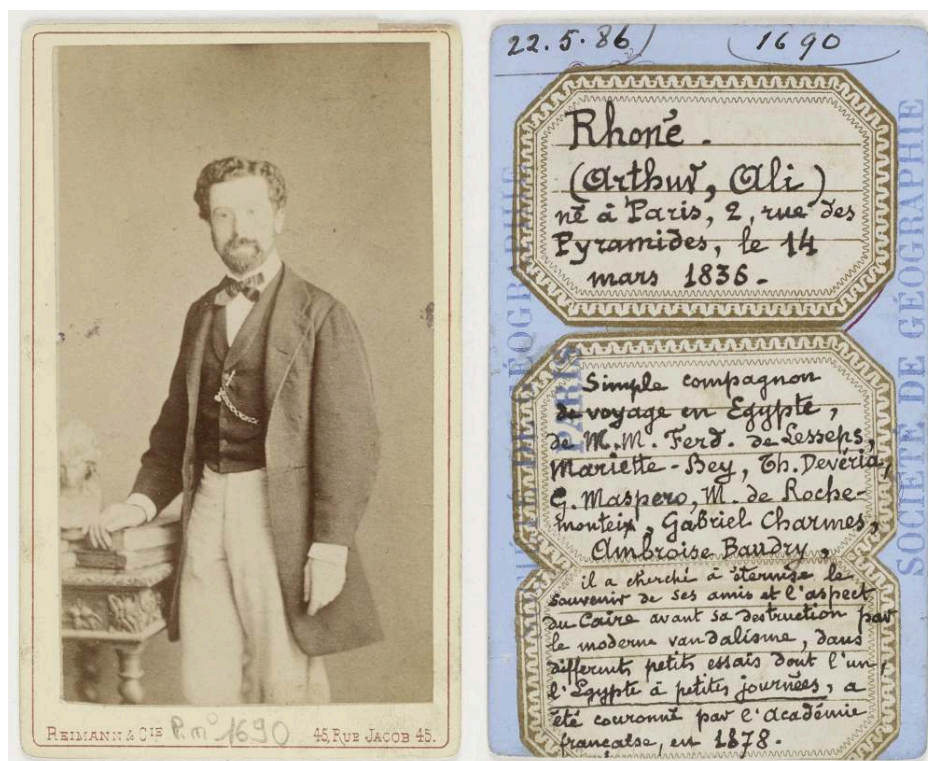 REIMANN & CIE
P. n° 1690
45, RUE JACOB 45.
22.5.86
1690
Rhoné.
(Arthur, Ali)
né à Paris, 2, rue des
Pyramides, le 14
mars 1836.-
Simple compagnon
de voyage en Egypte,
de M.M. Ferd. de Lesseps,
Mariette-Bey, Th. Devéria,
G. Maspero, M. de Roche-
monteix, Gabriel Charmes,
Ambroise Baudry,
il a cherché à éterniser le
souvenir de ses amis et l'aspect
du Caire avant sa destruction par
le moderne vandalisme, dans
différents petits essais dont l'un,
l'Egypte à petites journées, a
été couronné par l'Académie
française, en 1878.-
SOCIÉTÉ DE GÉOGRAPHIE
PARIS
SOCIÉTÉ DE GÉOGRAPHIE